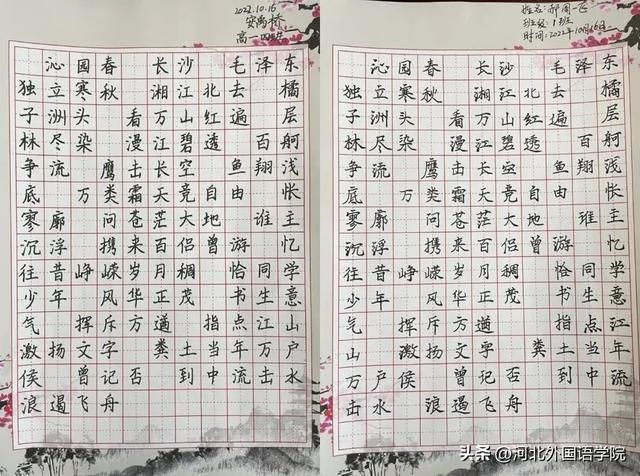 2022.10.16
高一四班
沁园春 长沙 毛泽东
独立寒秋 湘江北去 橘
子洲头 看万山红遍 层
林尽染 漫江碧透 百舸
争流 鹰击长空 鱼翔浅
底 万类霜天竞自由 怅
寥廓 问苍茫大地 谁主
沉浮 携来百侣曾游 忆
往昔 峥嵘岁月稠 恰同学
少年 风华正茂 书生意
气 挥斥方遒 指点江山
激扬文字 粪土当年万户
侯 曾记否 到中流击水
浪遏飞舟
姓名:郝周一飞
班级:1班
时间:2022年10月16日
沁园春 长沙 毛泽东
独立寒秋 湘江北去 橘
子洲头 看万山红遍 层
林尽染 漫江碧透 百舸
争流 鹰击长空 鱼翔浅
底 万类霜天竞自由 怅
寥廓 问苍茫大地 谁主
沉浮 携来百侣曾游 忆
往昔 峥嵘岁月稠 恰同学
少年 风华正茂 书生意
气 挥斥方遒 指点江
山 激扬文字 粪土当年
万户侯 曾记否 到中流
击水 浪遏飞舟
头条 @河北外国语学院